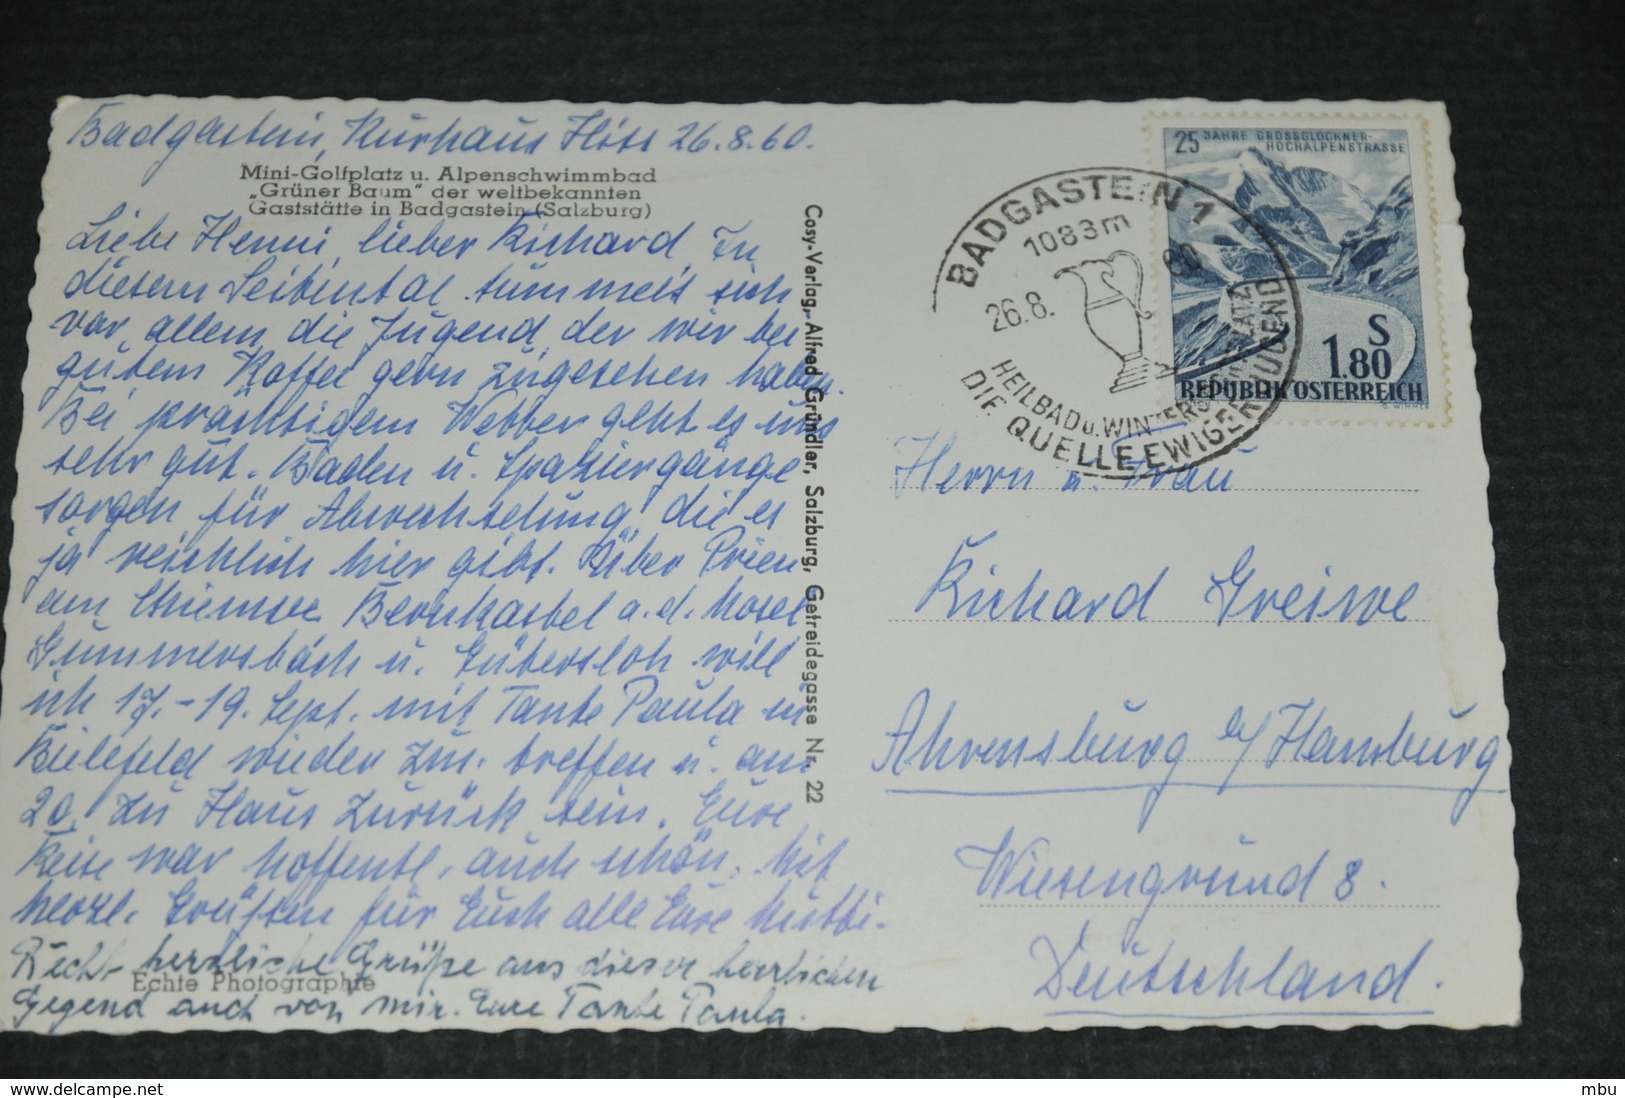 Badgastein, Kurhaus Höss 26.8.60.
Mini-Golfplatz u. Alpenschwimmbad
„Grüner Baum" der weltbekannten
Gaststätte in Badgastein (Salzburg)
Liebe Henni, lieber Richard, In
diesem Seitental tummelt sich
vor allem die Jugend, der wir bei
gutem Kaffee gern zugesehen haben.
Bei prächtigem Wetter geht es uns
sehr gut. Baden u. Spaziergänge
sorgen für Abwechselung, die es
ja reichlich hier gibt. Über Prien
am Chiemsee Bernkastel a.d. Mosel
Gummersbach u. Gütersloh will
ich 17.-19. Sept. mit Tante Paula in
Bielefeld wieder zus. treffen u. am
20. zu Haus zurück sein. Eure
Reise war hoffentl. auch schön. Mit
herzl. Grüßen für Euch alle Eure Mutti.
Recht herzliche Grüße aus dieser herrlichen
Echte Photographie
Gegend auch von mir. Eure Tante Paula.
Cosy-Verlag, Alfred Gründler, Salzburg, Getreidegasse Nr. 22
25 JAHRE GROSSGLOCKNER-
HOCHALPENSTRASSE
S
1.80
REPUBLIK ÖSTERREICH
G. WIMMER
BADGASTEIN 1
1083m
26.8. 60
HEILBAD u. WINTERSPORTPLATZ
DIE QUELLE EWIGER JUGEND
Herrn u. Frau
Richard Greiwe
Ahrensburg b/Hamburg
Wiesengrund 8.
Deutschland.
mbu